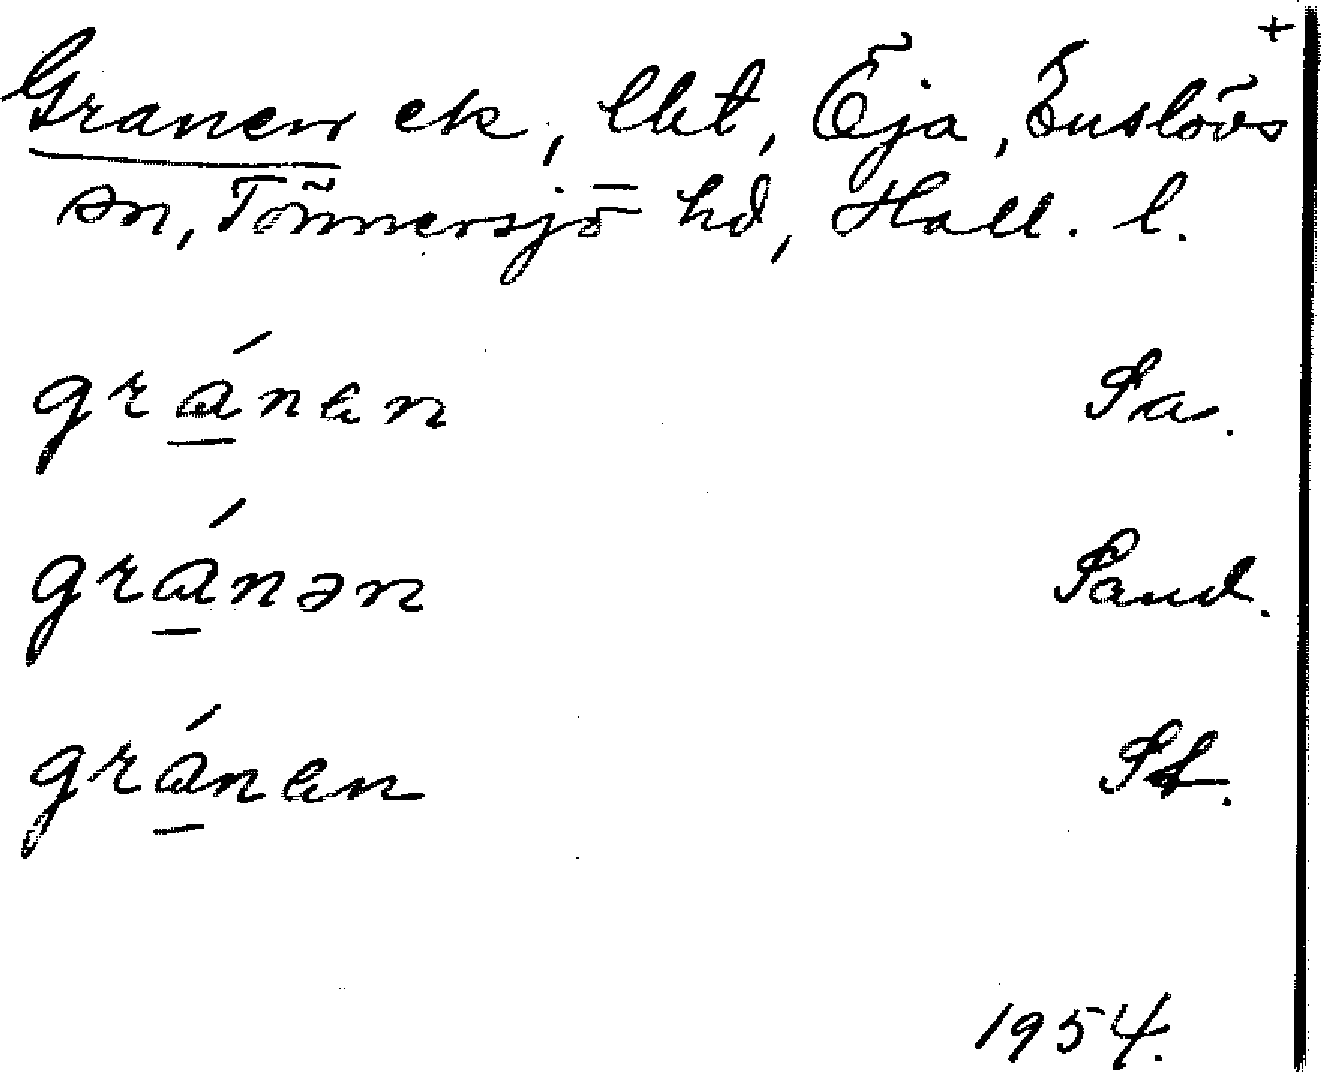 +
Granen ek, lht, Öja, Enslövs
sn, Tönnersjö hd, Hall. l.
gránen Sa.
gránən Sand.
gránen St.
1954.